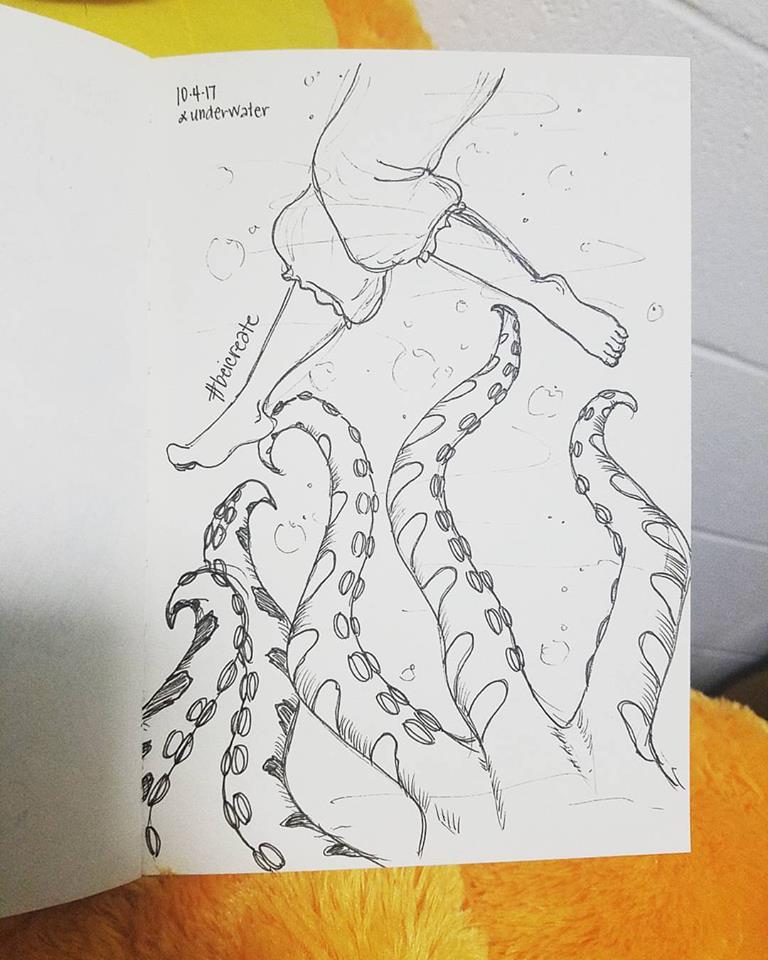 10·4·17
∝ underwater
#beicreate